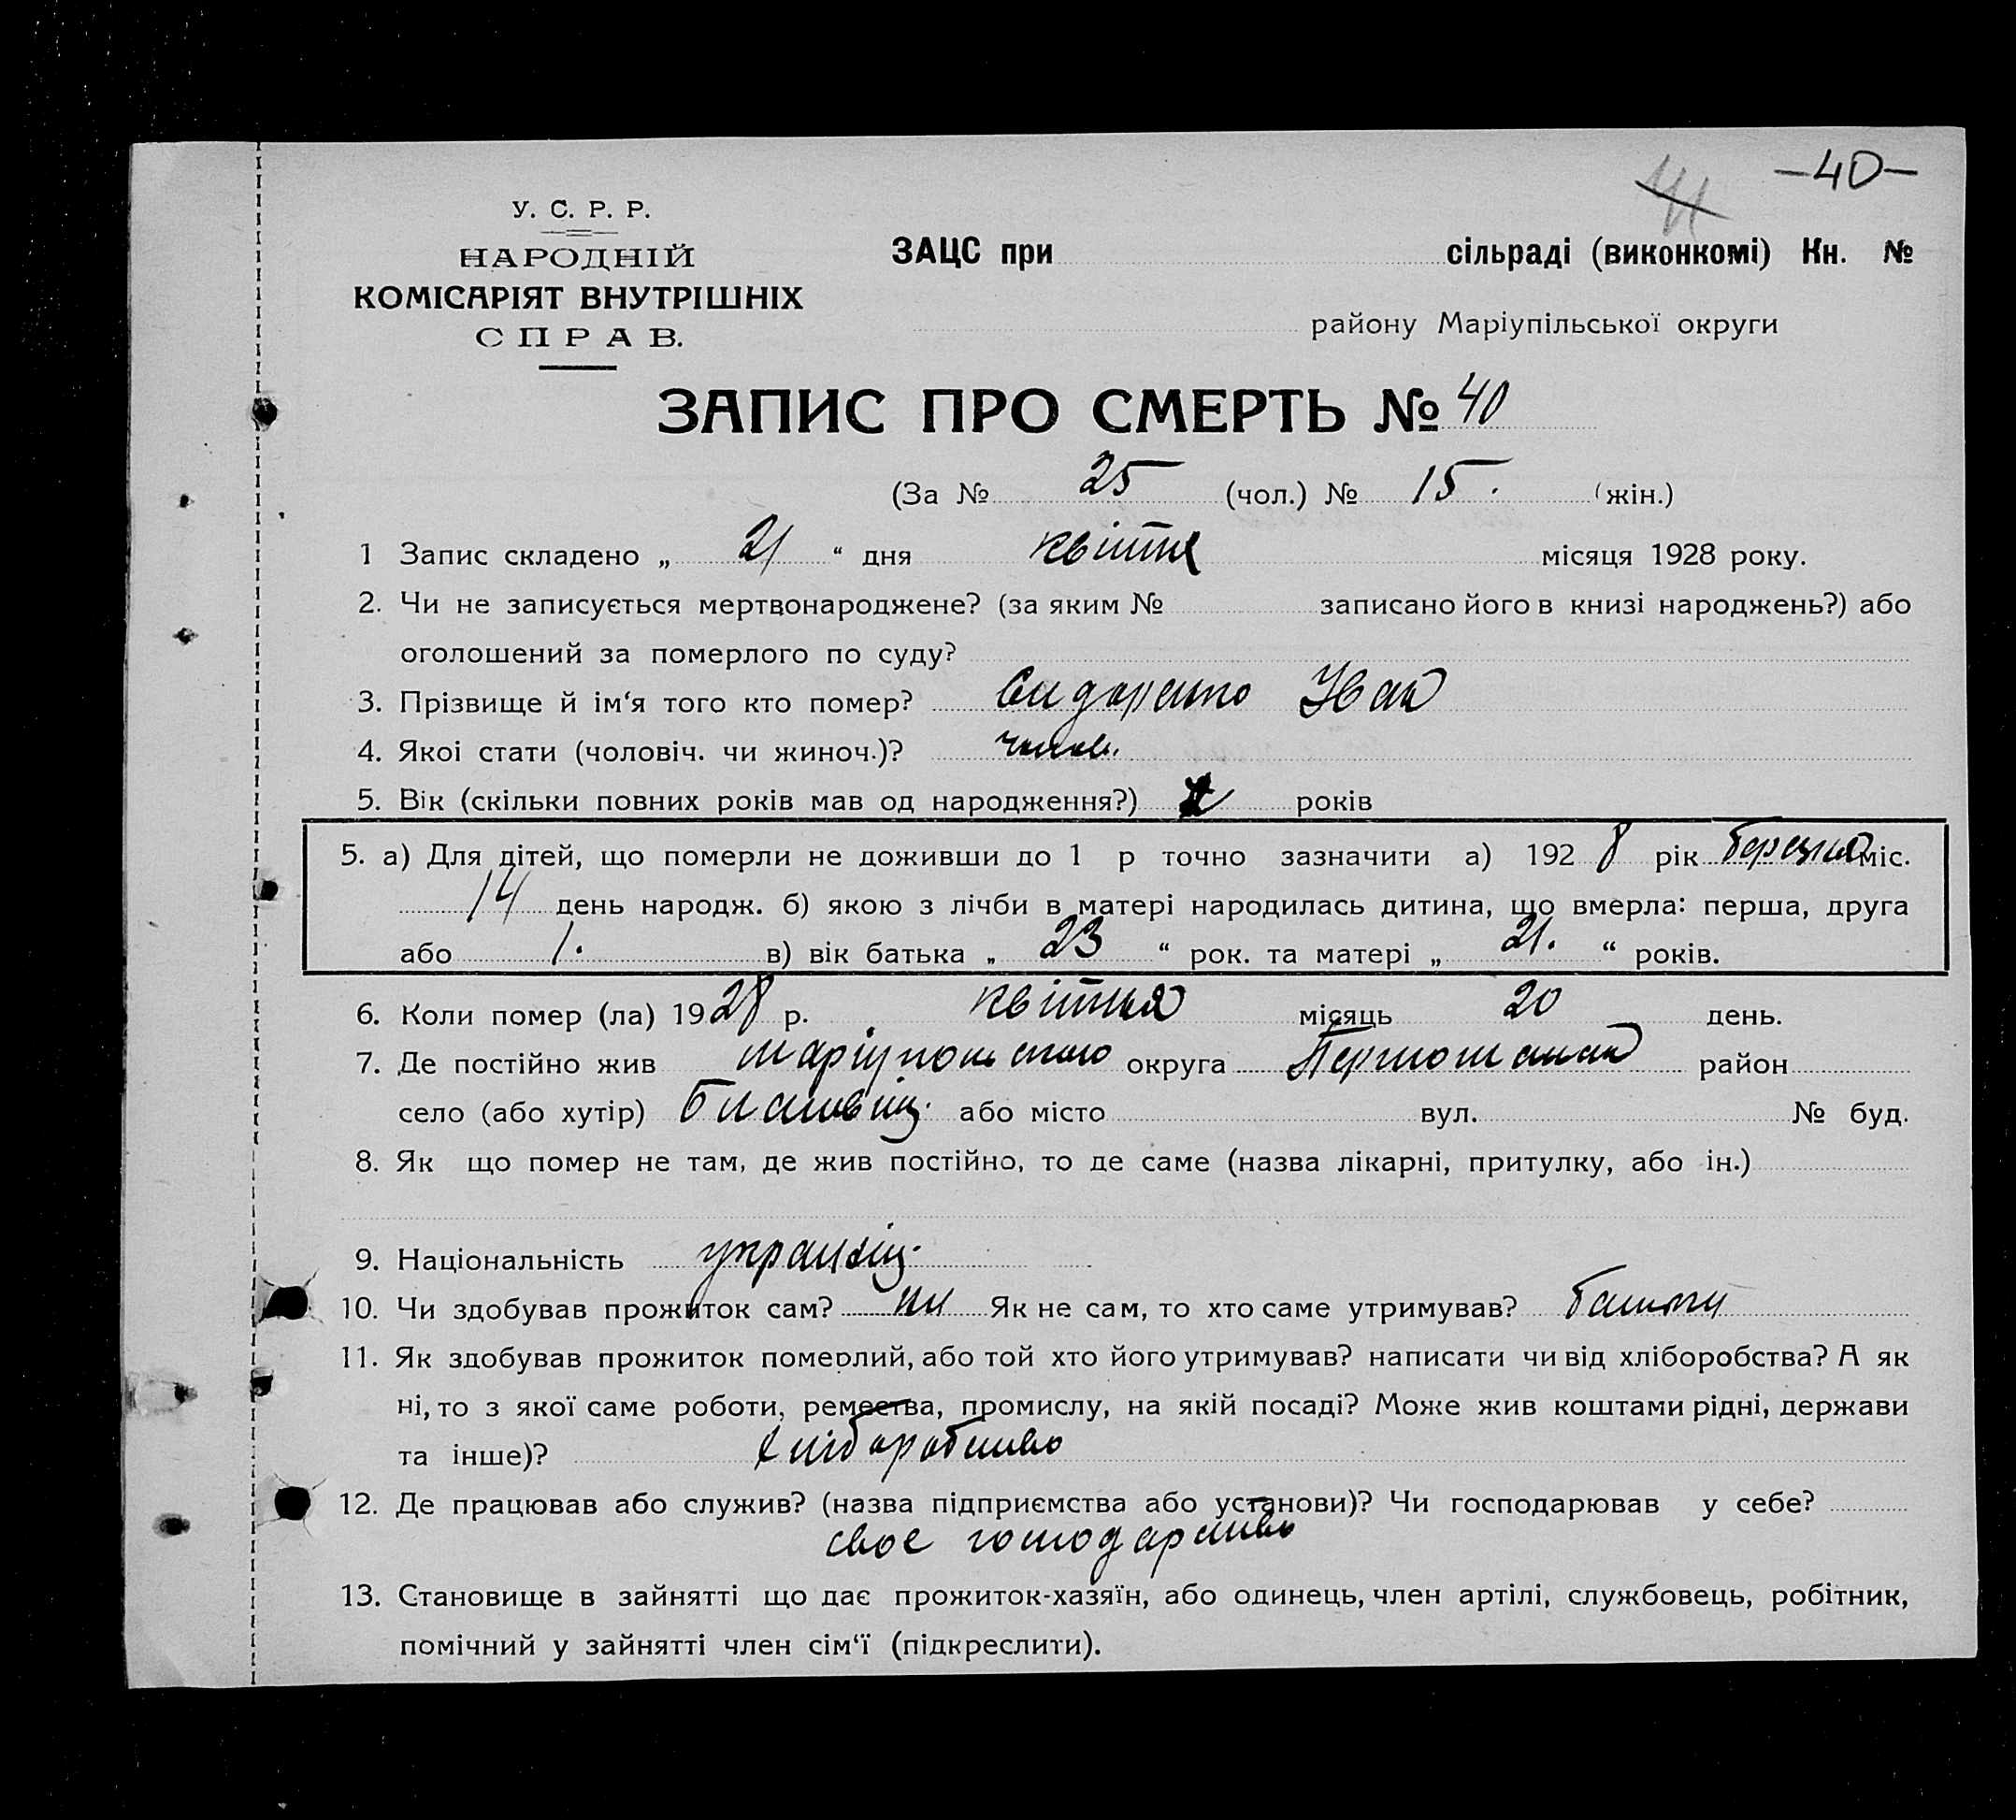 -40-
41
У. С. Р. Р.
НАРОДНІЙ
КОМІСАРІЯТ ВНУТРІШНІХ
СПРАВ.
ЗАЦС при сільраді (виконкомі) Кн. №
району Маріупільської округи
ЗАПИС ПРО СМЕРТЬ № 40
(За № 25 (чол.) № 15. (жін.)
1 Запис складено „ 21 “ дня квітня місяця 1928 року.
2. Чи не записується мертвонароджене? (за яким № записано його в книзі народжень?) або
оголошений за померлого по суду?
3. Прізвище й ім‘я того кто помер? Сидоренко Іван
4. Якоі стати (чоловіч. чи жиноч.)? чолов.
5. Вік (скільки повних років мав од народження?) років
5. а) Для дітей, що померли не доживши до 1 р точно зазначити а) 1928 рік березня міс.
14 день народж. б) якою з лічби в матері народилась дитина, що вмерла: перша, друга
або 1. в) вік батька „ 23 “ рок. та матері „ 21. “ років.
6. Коли помер (ла) 1928 р. квітня місяць 20 день.
7. Де постійно жив округа район
село (або хутір) або місто вул. № буд.
8. Як що помер не там, де жив постійно, то де саме (назва лікарні, притулку, або ін.)
9. Національність
10. Чи здобував прожиток сам? ни Як не сам, то хто саме утримував? батьки
11. Як здобував прожиток померлий, або той хто його утримував? написати чи від хліборобства? А як
ні, то з якої саме роботи, ремества, промислу, на якій посаді? Може жив коштами рідні, держави
та інше)? хліборобство
12. Де працював або служив? (назва підприємства або установи)? Чи господарював у себе?
своє господарство
13. Становище в зайнятті що дає прожиток-хазяїн, або одинець, член артілі, службовець, робітник,
помічний у зайнятті член сім‘ї (підкреслити).